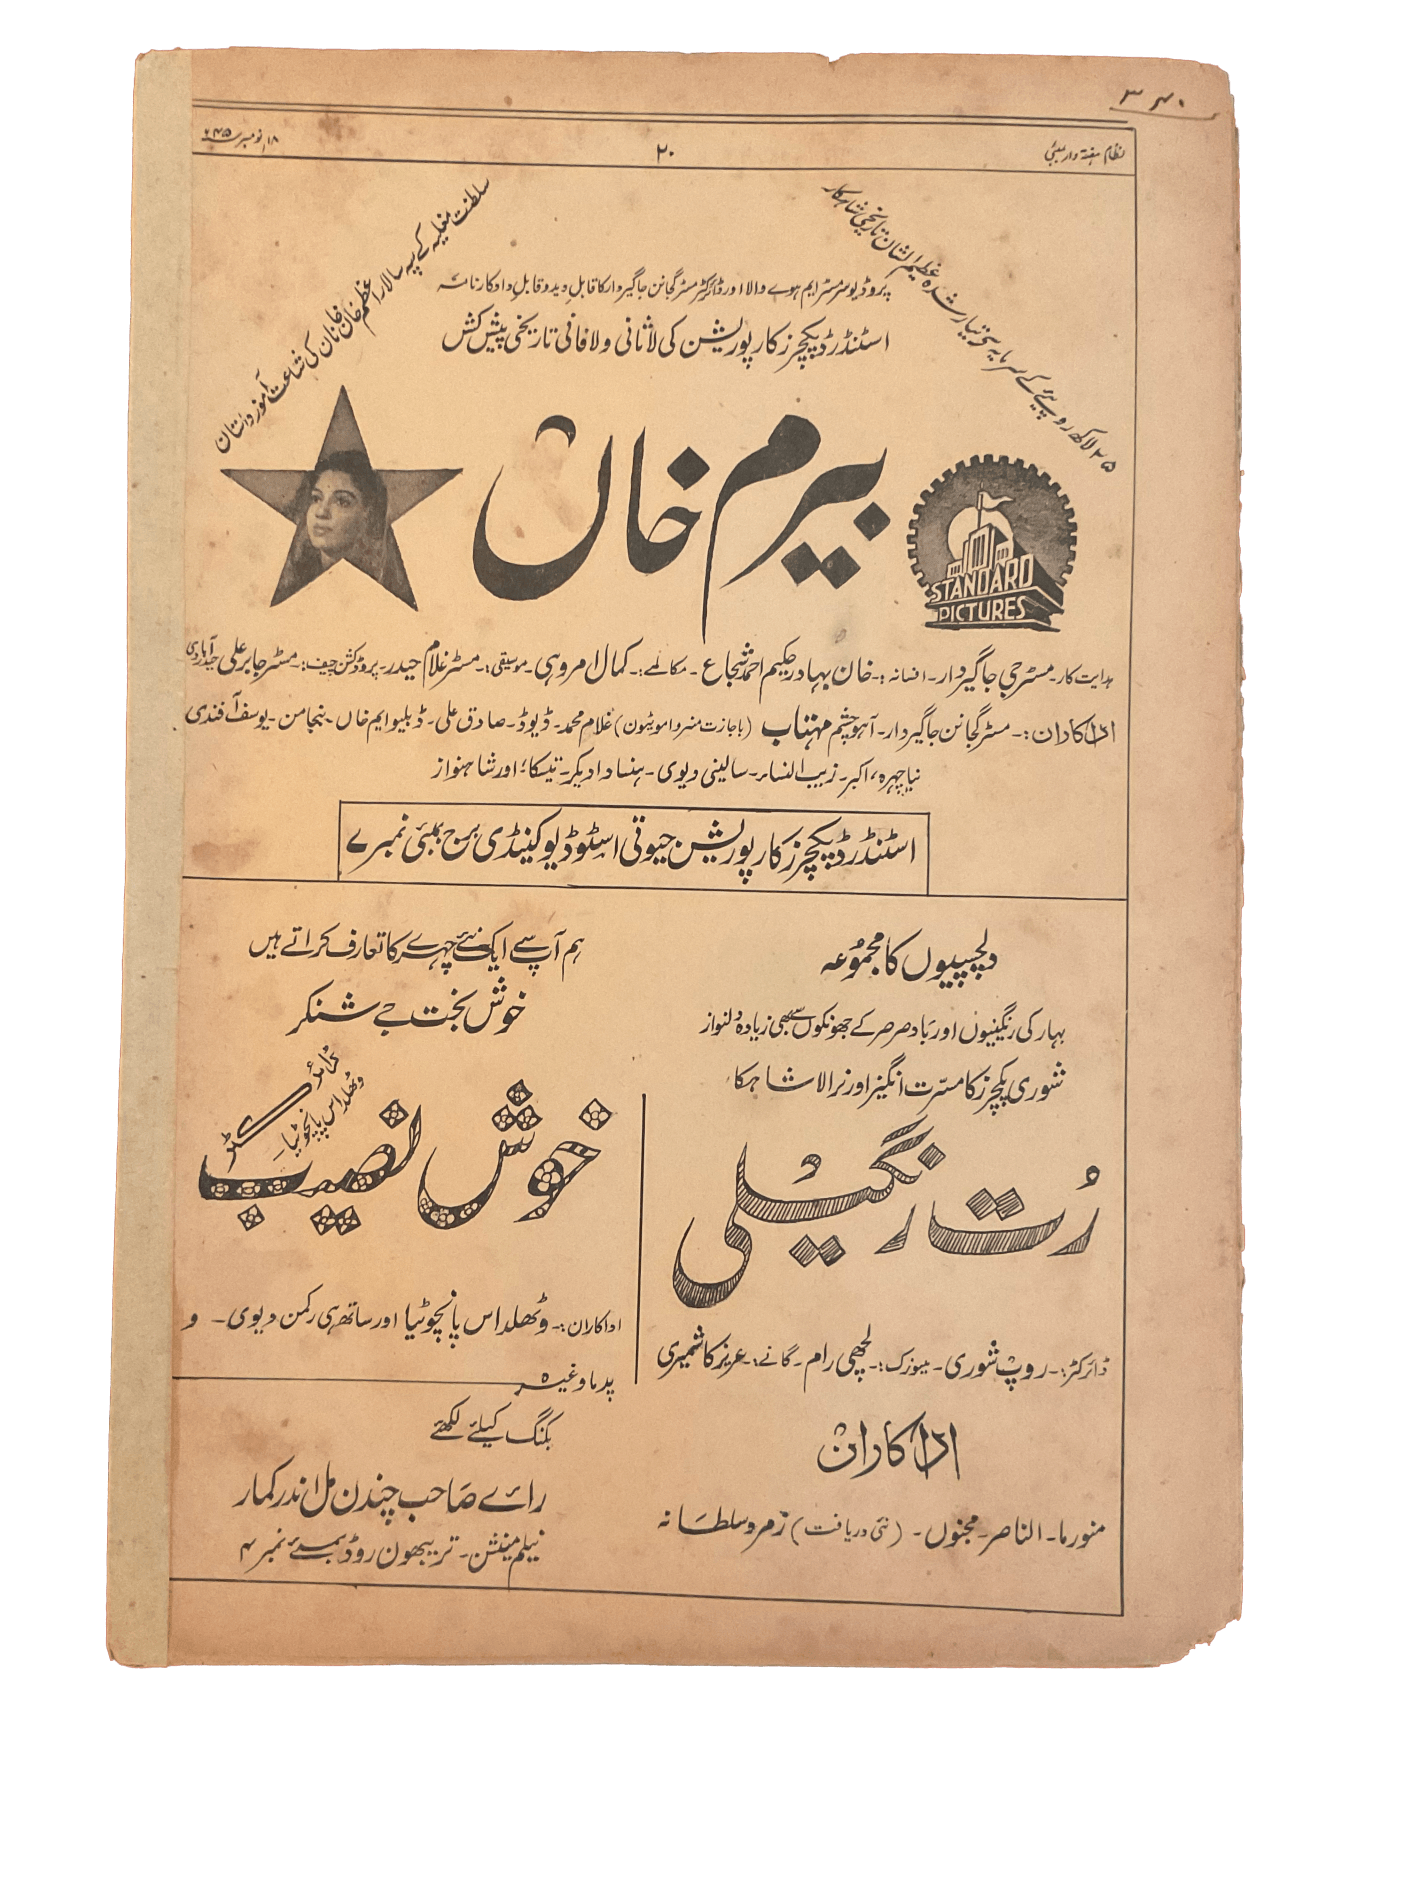 ۳۴۰
نظام ہفتہ وار بمبئی
۲۰
۱۸ نومبر ۴۵ء
۲۵ لاکھ روپیے کے سرمایہ سے تیار شدہ عظیم الشان تاریخی شاہکار
سلطنت مغلیہ کے سپہ سالار اعظم خان خاناں کی شجاعت آموز داستان
پروڈیوسر مسٹر ایم ہوے والا اور ڈائرکٹر مسٹر گجانن جاگیردار کا قابلِ دید و قابلِ داد کارنامہ
اسٹنڈرڈ پکچرز کارپوریشن کی لاثانی و لافانی تاریخی پیش کش
بیرم خاں
STANDARD
PICTURES
ہدایت کار۔ مسٹر جی جاگیردار۔ افسانہ:۔ خان بہادر حکیم احمد شجاع۔ مکالمے:۔ کمال امروہی۔ موسیقی:۔ مسٹر غلام حیدر۔ پروڈکشن چیف:۔ مسٹر جابر علی حیدرآبادی
اداکاران:۔ مسٹر گجانن جاگیردار۔ آہو چشم مہتاب (با اجازت منروا مووی ٹون) غلام محمد۔ ڈیوڈ۔ صادق علی۔ ڈبلیو ایم خاں۔ بنجامن۔ یوسف آفندی
نیا چہرہ، اکبر۔ زیب النساء۔ سالینی دیوی۔ ہنسا وادیکر۔ تیسکا؛ اور شاہنواز
اسٹنڈرڈ پکچرز کارپوریشن جیوتی اسٹوڈیو کینڈی برج بمبئی نمبر ۷
دلچسپیوں کا مجموعہ
بہار کی رنگینیوں اور باد صرصر کے جھونکوں سے بھی زیادہ دلنواز
شوری پکچرز کا مسرت انگیز اور نرالا شاہکار
رُت رنگیلی
ڈائرکٹر:۔ روپ شوری۔ میوزک:۔ لچھی رام۔ گانے:۔ عزیز کاشمیری
اداکاران
منورما۔ الناصر۔ مجنوں۔ (نئی دریافت) زمرد سلطانہ
ہم آپ سے ایک نئے چہرے کا تعارف کراتے ہیں
خوش بخت جے شنکر
خوش نصیب
ڈائرکٹر
وٹھلداس پانچوٹیا۔
اداکاران:۔ وٹھلداس پانچوٹیا اور ساتھ ہی رکمن دیوی۔ و
پدما وغیرہ
بکنگ کیلئے لکھئے
رائے صاحب چندن مل اندر کمار
نیلم مینشن۔ تربیھون روڈ بمبئے نمبر ۴